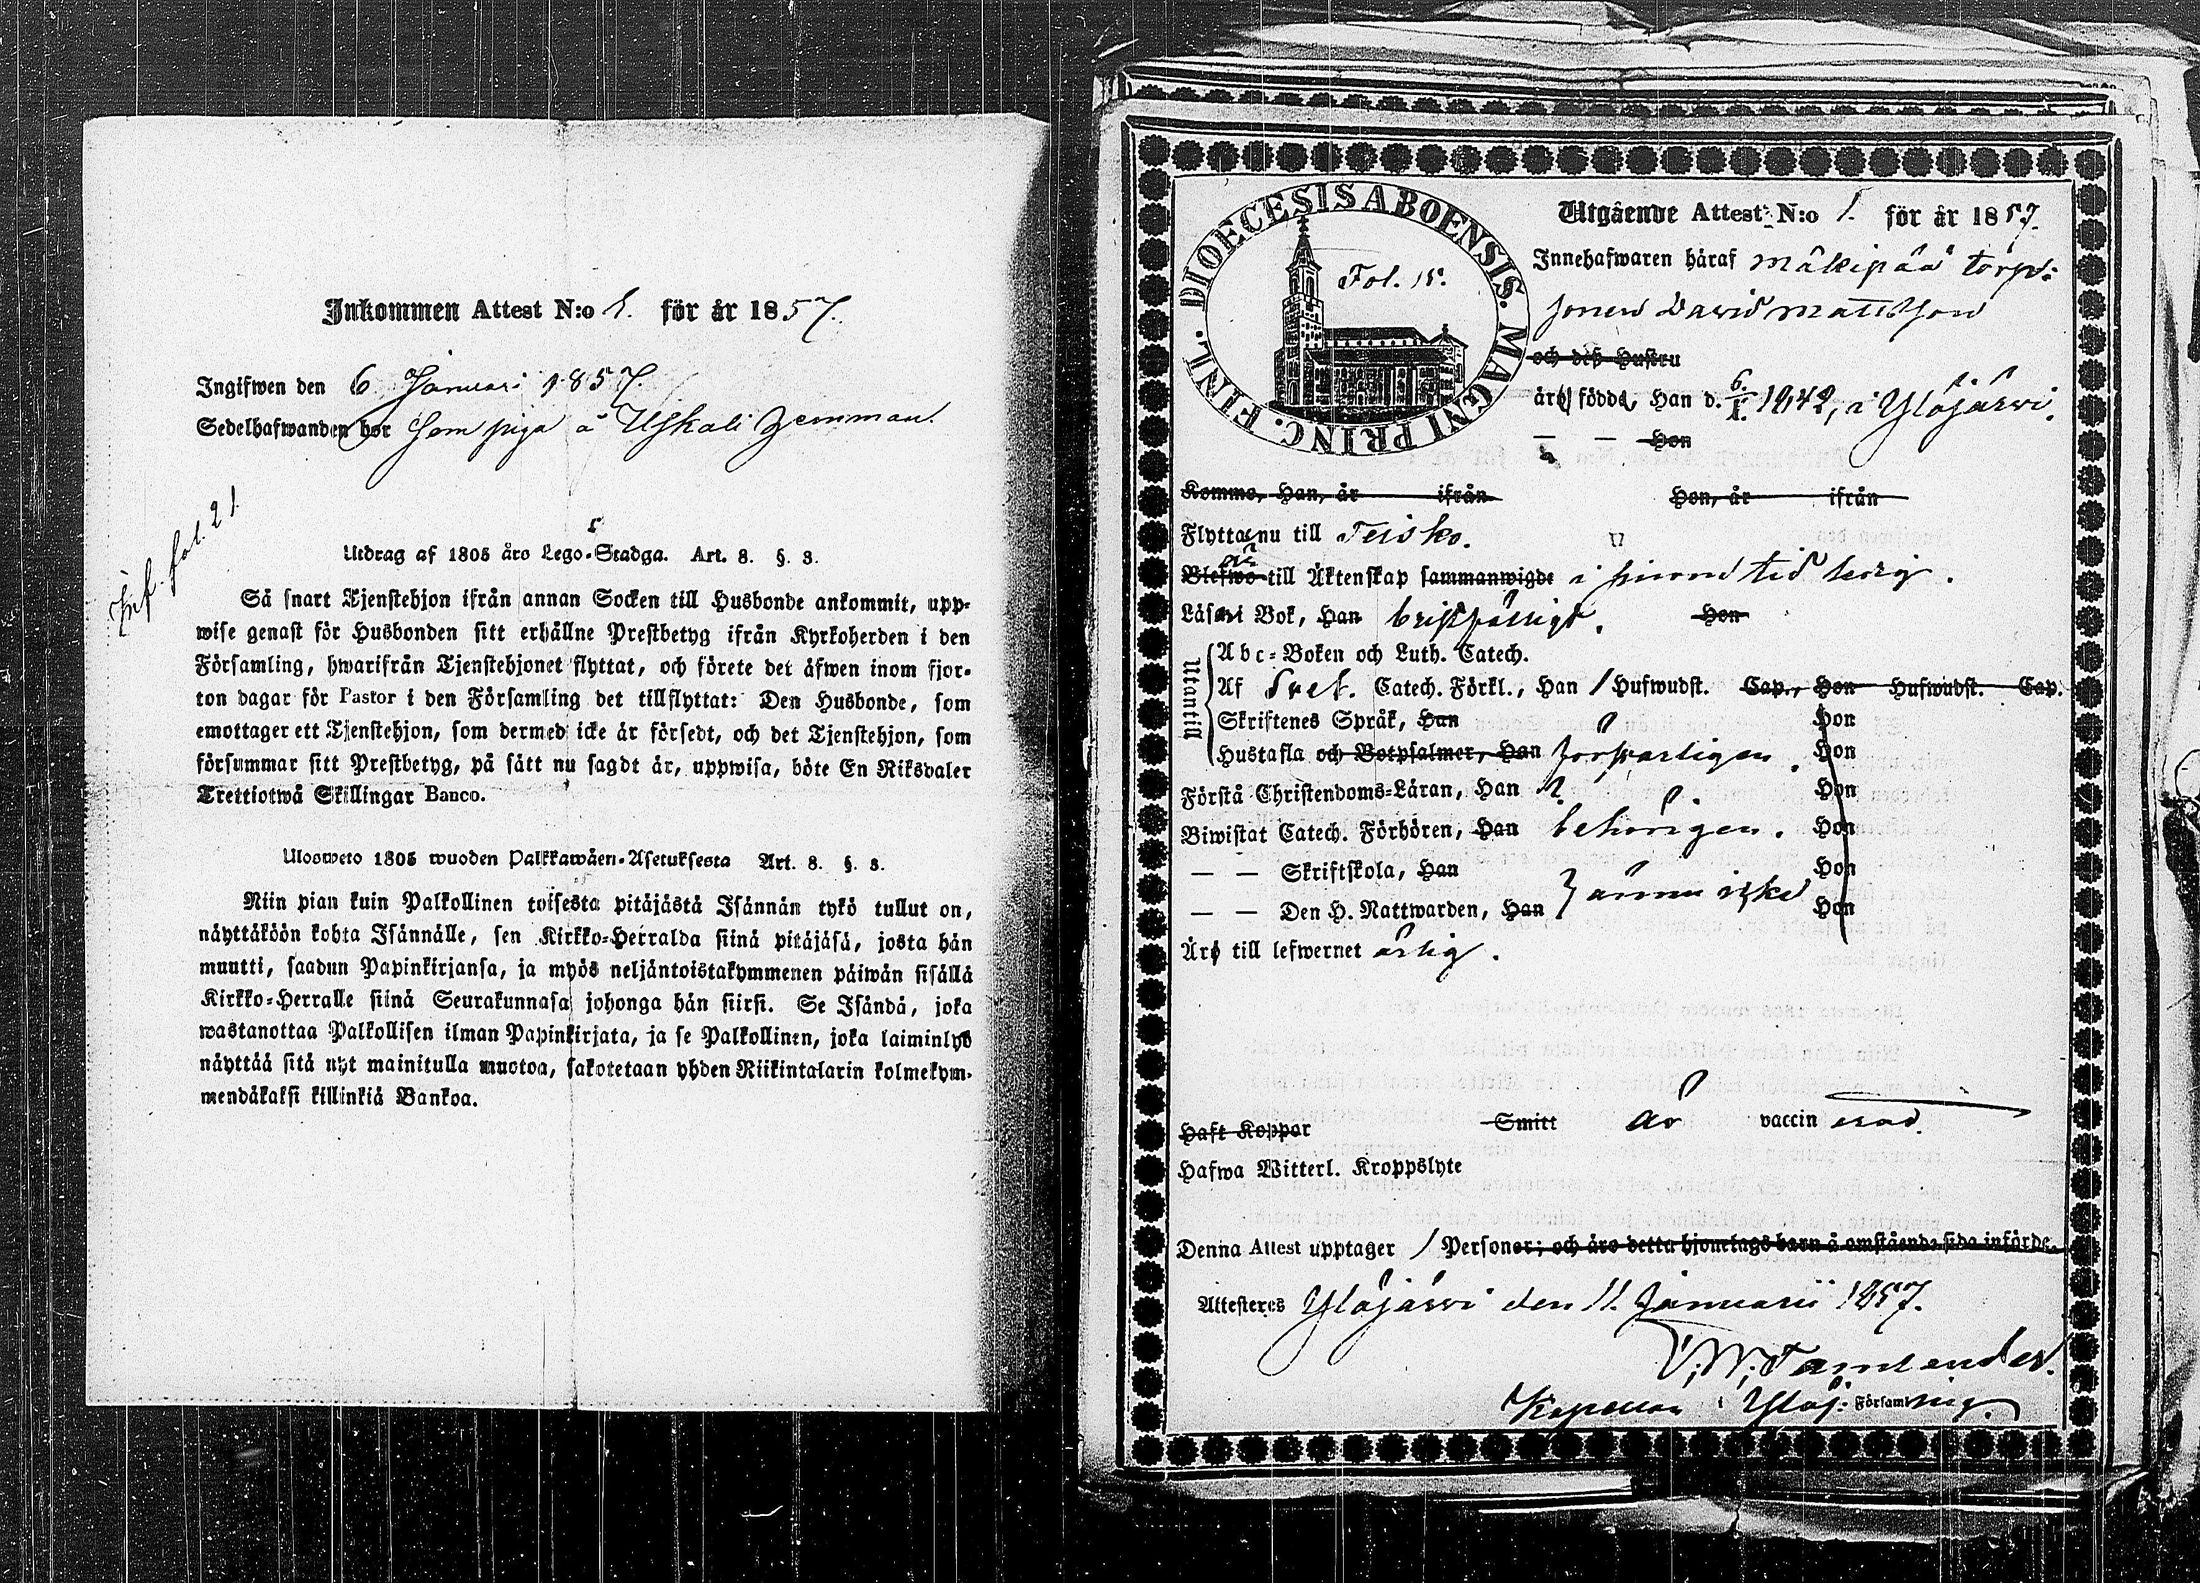 Inkommen Attest N:o 1. för år 1857.
Ingifwen den 6 Januari 1857.
Sedelhafwanden bor som piga å Uskali hemman.
Inf. fol. 21.
Utdrag af 1805 års Lego-Stadga. Art. 8. §. 3.
Så snart Tjenstehjon ifrån annan Socken till Husbonde ankommit, upp-
wise genast för Husbonden sitt erhållne Prestbetyg ifrån Kyrkoherden i den
Församling, hwarifrån Tjenstehjonet flyttat, och förete det äfwen inom fjor-
ton dagar för Pastor i den Församling det tillflyttat: Den Husbonde, som
emottager ett Tjenstehjon, som dermed icke är försedt, och det Tjenstehjon, som
försummar sitt Prestbetyg, på sätt nu sagdt är, uppwisa, böte En Riksdaler
Trettiotwå Skillingar Banco.
Ulosweto 1805 wuoden Palkkawäen-Asetuksesta Art. 8. §. 3.
Niin pian kuin Palkollinen toisesta pitäjästä Isännän tykö tullut on,
näyttäköön kohta Isännälle, sen Kirkko-Herralda siinä pitäjäsä, josta hän
muutti, saadun Papinkirjansa, ja myös neljäntoistakymmenen päiwän sisällä
Kirkko-Herralle siinä Seurakunnasa johonga hän siirsi. Se Isändä, joka
wastanottaa Palkollisen ilman Papinkirjata, ja se Palkollinen, joka laiminlyö
näyttää sitä nyt mainitulla muotoa, sakotetaan yhden Riikintalarin kolmekym-
mendäkaksi killinkiä Bankoa.
DIOECESIS ABOENSIS. MAGNI PRINC. FINL.
Fol. 15.
Utgående Attest N:o 1. för år 1857.
Innehafwaren häraf Mäkipää torp:
sonen David Mattsson
och deß Hustru
är födde, Han d. 6/1. 1842, i Ylöjärvi.
— — Hon
Komme, Han, år ifrån Hon, år ifrån
Flyttar nu till Teisko.
Blefwo är till Äktenskap sammanwigde i sinom tid ledig.
Läsa i Bok, Han bristfälligt. Hon
Utantill
Abc-Boken och Luth. Catech.
Af Sveb. Catech. Förkl., Han 1 Hufwudst. Cap., Hon Hufwudst. Cap.
Skriftenes Språk, Han Hon
Hustafla och Botpsalmer, Han försvarligen. Hon
Förstå Christendoms-Läran, Han Hon
Biwistat Catech. Förhören, Han behörigen. Hon
— — Skriftskola, Han Hon
— — Den H. Nattwarden, Han } ännu icke Hon
Äro till lefwernet ärlig.
Haft Koppor Smitt är vaccin erad.
Hafwa Witterl. Kroppslyte
Denna Attest upptager 1 Personer; och äro detta hjonelags barn å omstående sida införde.
Attesteras Ylöjärvi den 11. Januarii 1857.
Kapellan i Ylöj. Församling.